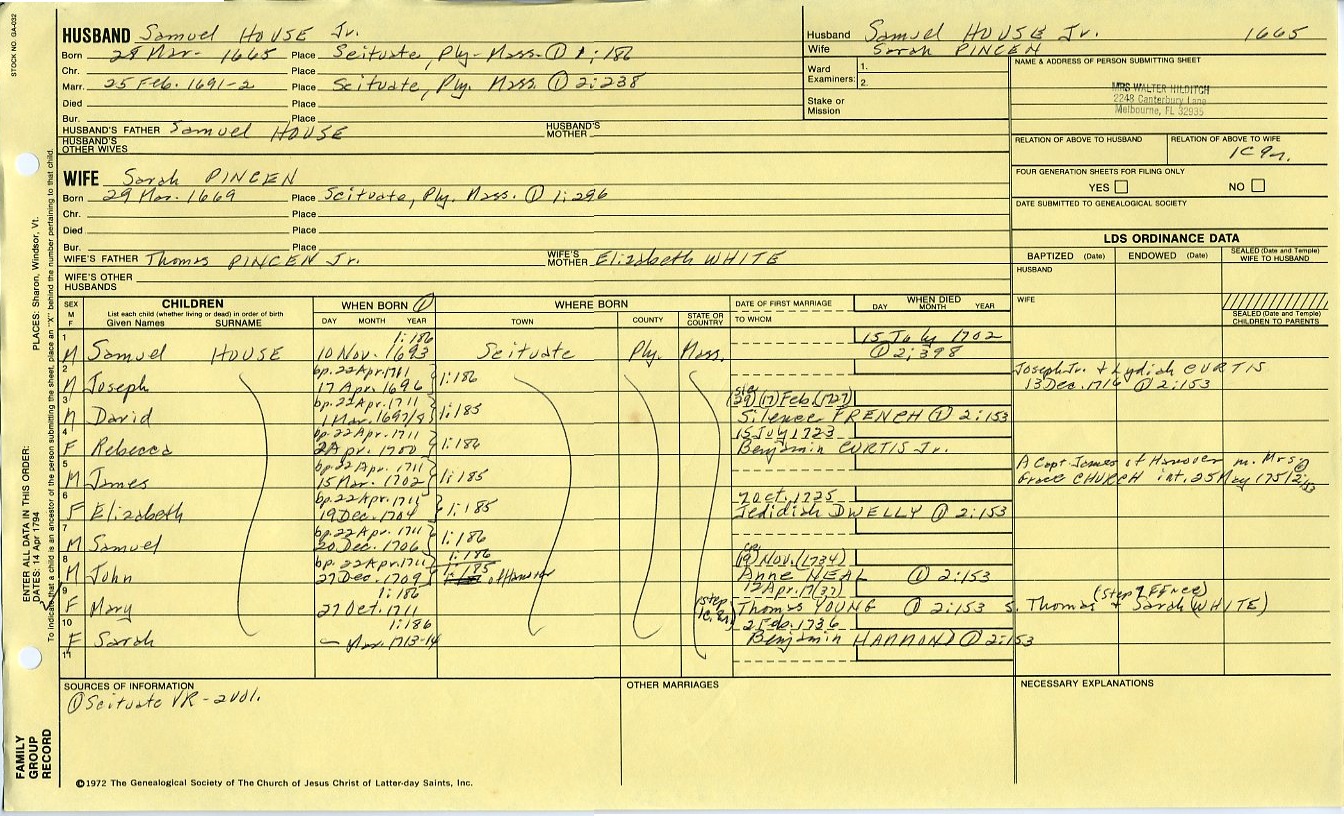 STOCK NO. GA-032
HUSBAND Samuel HOUSE Jr.
Born 29 Mar. 1665 Place Scituate, Ply-Mass. ① 1:186
Chr. Place
Marr. 25 Feb. 1691-2 Place Scituate, Ply. Mass. ① 2:238
Died Place
Bur. Place
HUSBAND'S FATHER Samuel HOUSE HUSBAND'S MOTHER
HUSBAND'S OTHER WIVES
Husband Samuel HOUSE Jr. 1665
Wife Sarah PINCEN
Ward Examiners: 1.
2.
Stake or Mission
NAME & ADDRESS OF PERSON SUBMITTING SHEET
MRS WALTER HILDITCH
2248 Canterbury Lane
Melbourne, FL 32935
RELATION OF ABOVE TO HUSBAND RELATION OF ABOVE TO WIFE
1C 9r.
FOUR GENERATION SHEETS FOR FILING ONLY
YES NO
DATE SUBMITTED TO GENEALOGICAL SOCIETY
WIFE Sarah PINCEN
Born 29 Mar. 1669 Place Scituate, Ply. Mass. ① 1:296
Chr. Place
Died Place
Bur. Place
WIFE'S FATHER Thomas PINCEN Jr. WIFE'S MOTHER Elizabeth WHITE
WIFE'S OTHER HUSBANDS
LDS ORDINANCE DATA
BAPTIZED (Date) ENDOWED (Date) SEALED (Date and Temple) WIFE TO HUSBAND
HUSBAND
WIFE
SEALED (Date and Temple) CHILDREN TO PARENTS
SEX M F CHILDREN WHEN BORN ① WHERE BORN DATE OF FIRST MARRIAGE WHEN DIED
List each child (whether living or dead) in order of birth
Given Names SURNAME DAY MONTH YEAR TOWN COUNTY STATE OR COUNTRY TO WHOM DAY MONTH YEAR
1 1:186 15 July 1702
M Samuel HOUSE 10 Nov. 1693 Scituate Ply. Mass. ① 2:398
2 bp. 22 Apr. 1711 Joseph Jr. + Lydiah CURTIS
M Joseph 17 Apr. 1696 1:186 13 Dec. 1716 ① 2:153
3 bp. 22 Apr. 1711 (29) (17) Feb. (1727)
M David 1 Mar. 1697/8 1:185 Silence FRENCH ① 2:153
4 bp. 22 Apr. 1711 15 July 1723
F Rebecca 2 Apr. 1700 1:186 Benjamin CURTIS Jr.
5 bp. 22 Apr. 1711 A Capt James of Hanover m. Mrs ①
M James 15 Mar. 1702 1:185 Grace CHURCH int. 25 May 1751 2:153
6 bp. 22 Apr. 1711 7 Oct. 1725
F Elizabeth 19 Dec. 1704 1:185 Jedidiah DWELLY ① 2:153
7 bp. 22 Apr. 1711
M Samuel 20 Dec. 1706 1:186
8 bp. 22 Apr. 1711 1:186 (19) Nov. (1734)
M John 27 Dec. 1709 1:185 of Hanover Anne NEAL ① 2:153
9 1:186 12 Apr. 17(37)
F Mary 27 Oct. 1711 (step Thomas YOUNG ① 2:153 s. Thomas + Sarah (WHITE)
10 1:186 2 Feb. 1736
F Sarah — Mar. 1713-14 Benjamin HAMMOND ① 2:153
11
SOURCES OF INFORMATION OTHER MARRIAGES NECESSARY EXPLANATIONS
① Scituate VR - 2 vol.
©1972 The Genealogical Society of The Church of Jesus Christ of Latter-day Saints, Inc.
FAMILY GROUP RECORD
ENTER ALL DATA IN THIS ORDER:
DATES: 14 Apr 1794 PLACES: Sharon, Windsor, Vt.
To indicate that a child is an ancestor of the person submitting the sheet, place an "X" behind the number pertaining to that child.